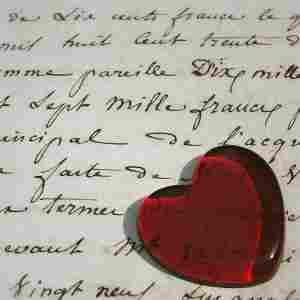 de Six cents francs le
mil huit cent trente d
omme pareille Dix mille
t sept mille francs
incipal de l'acqu
e faite de
s termes
evant Me
Vingt neuf